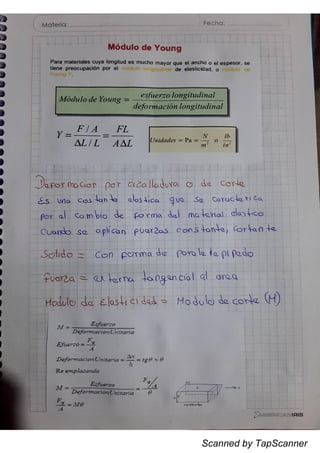 Materia:
Fecha:
Módulo de Young
Para materiales cuya longitud es mucho mayor que el ancho o el espesor, se
tiene preocupación por el módulo longitudinal de elasticidad, o módulo de
Young Y.
Módulo de Young = esfuerzo longitudinal / deformación longitudinal
Y = F / A / ΔL / L = FL / A ΔL
Unidades = Pa = N/m² o lb/in²
Deformacion por cizalladura o de corte
Es una constante elastica que se caracteriza
por el cambio de forma del material elastico
Cuando se aplican fuerzas constante, cortante
Solido = Con forma de paralelepipedo
Fuerza = externa tangencial al area
Modulo de Elasticidad = Modulo de corte (M)
M = Esfuerzo / DeformacionUnitaria
Esfuerzo = / A
DeformacionUnitaria = = tgθ = θ
Reemplazando
M = Esfuerzo / DeformacionUnitaria = / θ
/ A = Mθ
AMERICANIRIS
Scanned by TapScanner